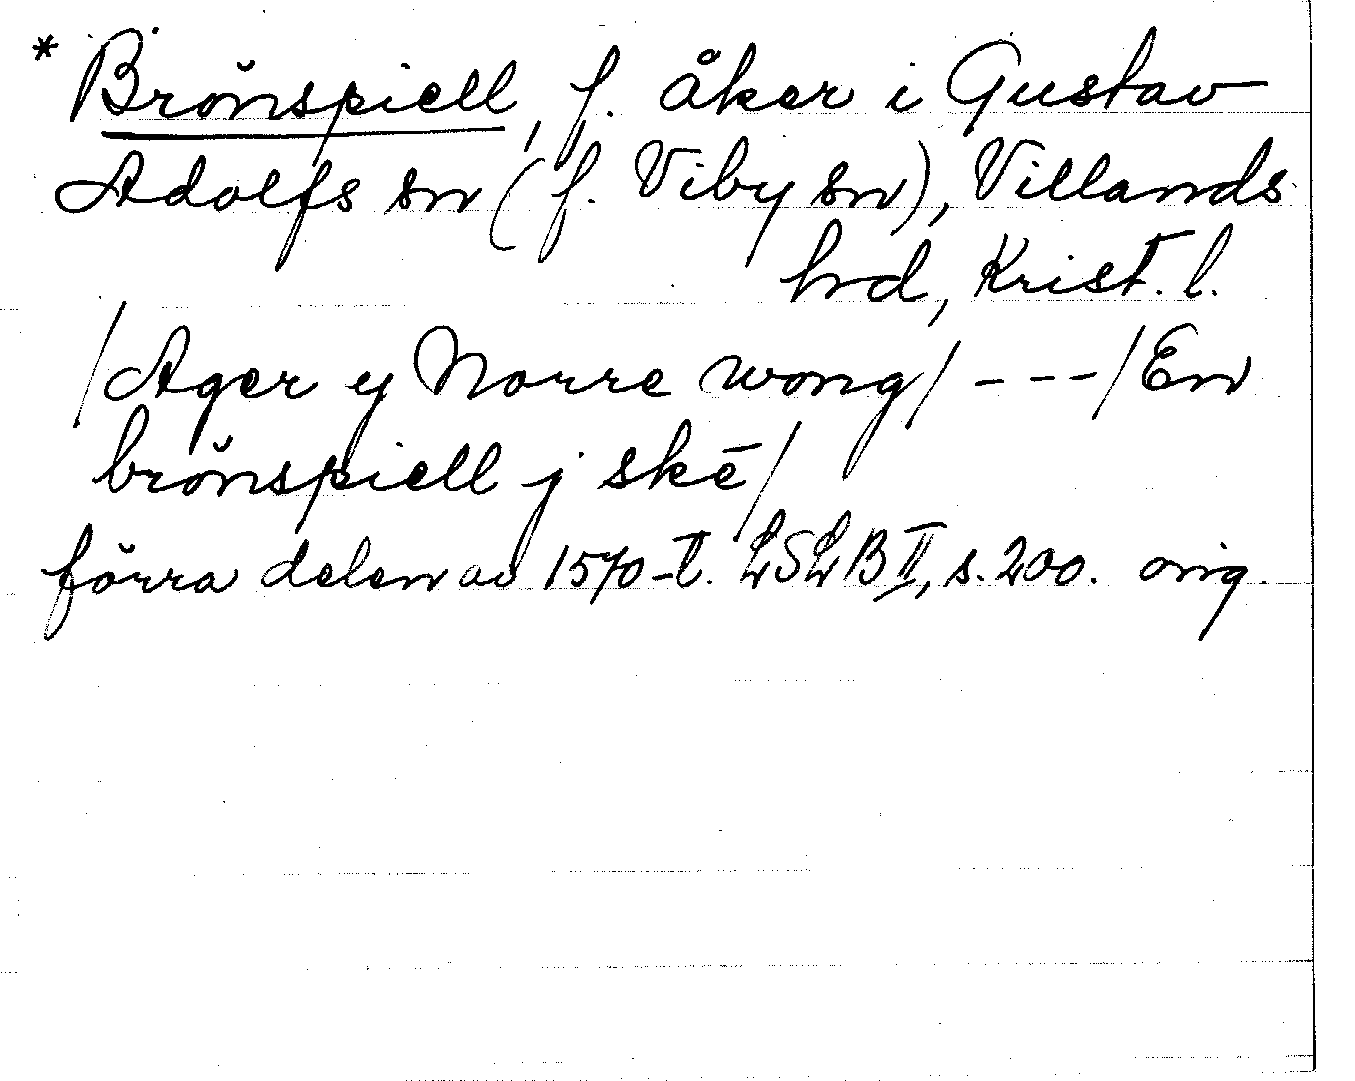 * Brönspiell, f. åker i Gustav
Adolfs sn (f. Viby sn), Villands
hd, Krist. l.
/Ager y Norre wong/ - - - /En
brönspiell j skē/
förra delen av 1570-t. LSLB II, s. 200. orig.